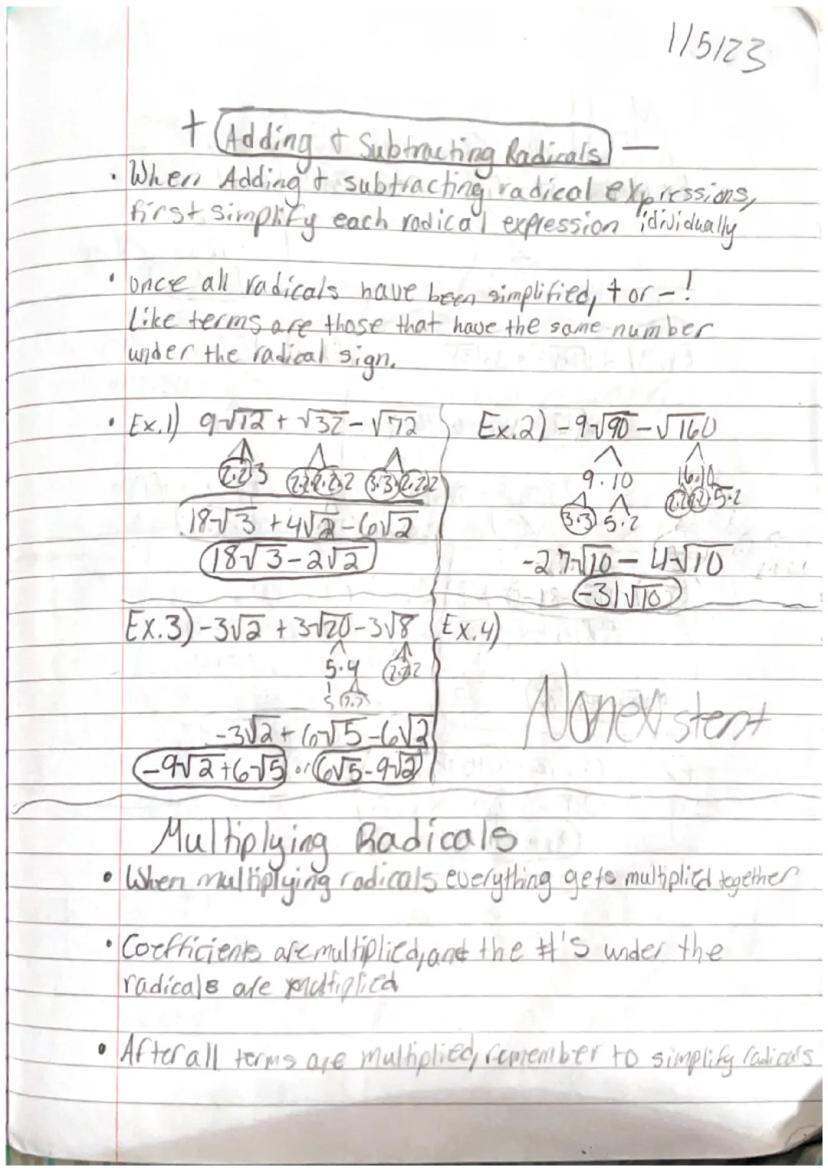 1/5/23
+ Adding & Subtracting Radicals —
• When Adding & subtracting radical expressions,
first simplify each radical expression idividually
• once all radicals have been simplified, + or - !
Like terms are those that have the same number
under the radical sign.
• Ex.1) 9√12 + √32 - √72
2·2·3 2·2·2·2·2 3·3·2·2·2
18√3 + 4√2 - 6√2
18√3 - 2√2
Ex.2) -9√90 - √160
9·10 16·10
3·3 5·2 2·2·2·2 5·2
-27√10 - 4√10
-31√10
Ex.3) -3√2 + 3√20 - 3√8
5·4 2·2·2
5 2·2
-3√2 + 6√5 - 6√2
-9√2 + 6√5 or 6√5 - 9√2
Ex.4)
Nonexistent
Multiplying Radicals
• When multiplying radicals everything gets multiplied together
• Coefficients are multiplied, and the #'s under the
radicals are multiplied
• After all terms are multiplied, remember to simplify radicals